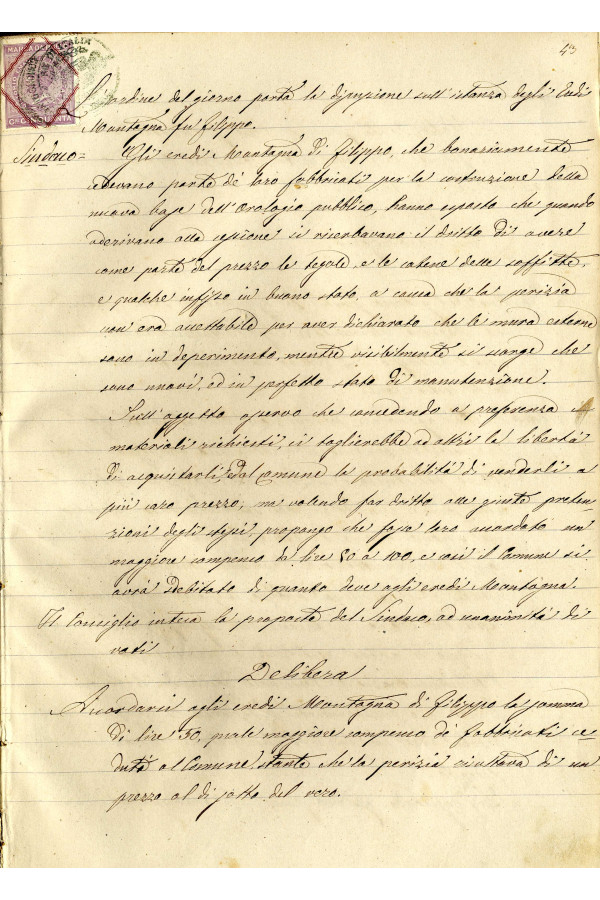 43
MARCA DA
CINQUANTA
L'ordine del giorno porta la discussione sull'istanza degli Eredi
Montagna fu Filippo.
Sindaco = Gli eredi Montagna di Filippo, che bonariamente
cedevano parte de' loro fabbricati per la costruzione della
nuova base dell'Orologio pubblico, hanno esposto che quando
aderivano alla cessione si riserbavano il dritto di avere
come parte del prezzo le tegole, e le catene delle soffitte,
e qualche infisso in buono stato, a causa che la perizia
non era accettabile per aver dichiarato che le mura esterne
sono in deperimento, mentre visibilmente si scorge che
sono nuovi, ed in perfetto stato di manutenzione.
Sull'oggetto osservo che concedendo a preferenza i
materiali richiesti, si toglierebbe ad altri la libertà
di acquistarli, e dal Comune la probabilità di venderli a
più caro prezzo, ma volendo far dritto alle giuste preten-
zioni degli stessi, propongo che fosse loro accordato un
maggiore compenso da lire 50 a 100, e così il Comune si
avrà Debitato di quanto deve agli eredi Montagna.
Il Consiglio intesa la proposta del Sindaco, ad unanimità di
voti
Delibera
Accordarsi agli eredi Montagna di Filippo la somma
di lire 50, pel maggiore compenso di fabbricati ce-
duti al Comune, stante che la perizia risultava di un
prezzo al di sotto del vero.